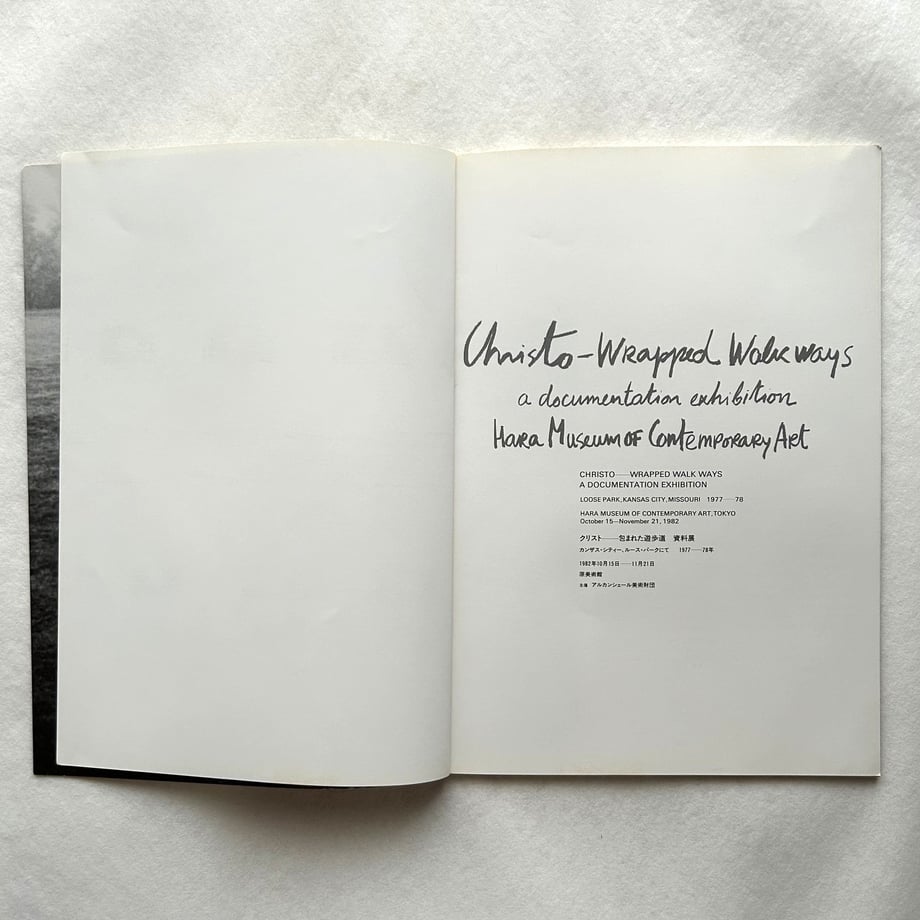 Christo-Wrapped Walk ways
a documentation exhibition
Hara Museum of Contemporary Art
CHRISTO——WRAPPED WALK WAYS
A DOCUMENTATION EXHIBITION
LOOSE PARK, KANSAS CITY, MISSOURI 1977——78
HARA MUSEUM OF CONTEMPORARY ART, TOKYO
October 15—November 21, 1982
クリスト——包まれた遊歩道 資料展
カンザス・シティー、ルース・パークにて 1977——78年
1982年10月15日——11月21日
原美術館
主催 アルカンシェール美術財団